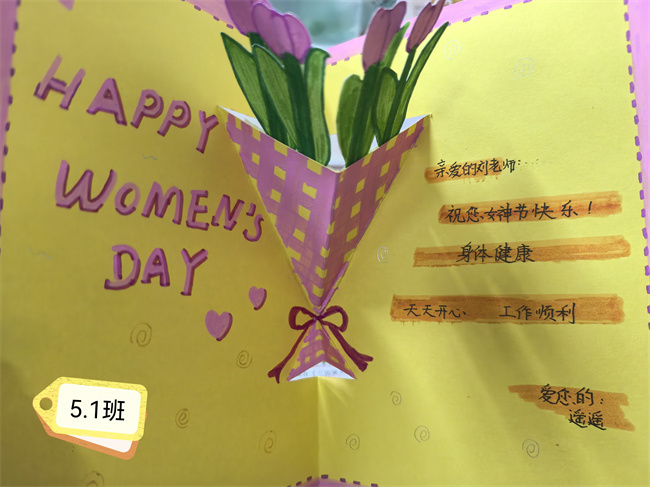 HAPPY
WOMEN'S
DAY
亲爱的刘老师:
祝您女神节快乐!
身体健康
天天开心 工作顺利
爱您的:
遥遥
5.1班